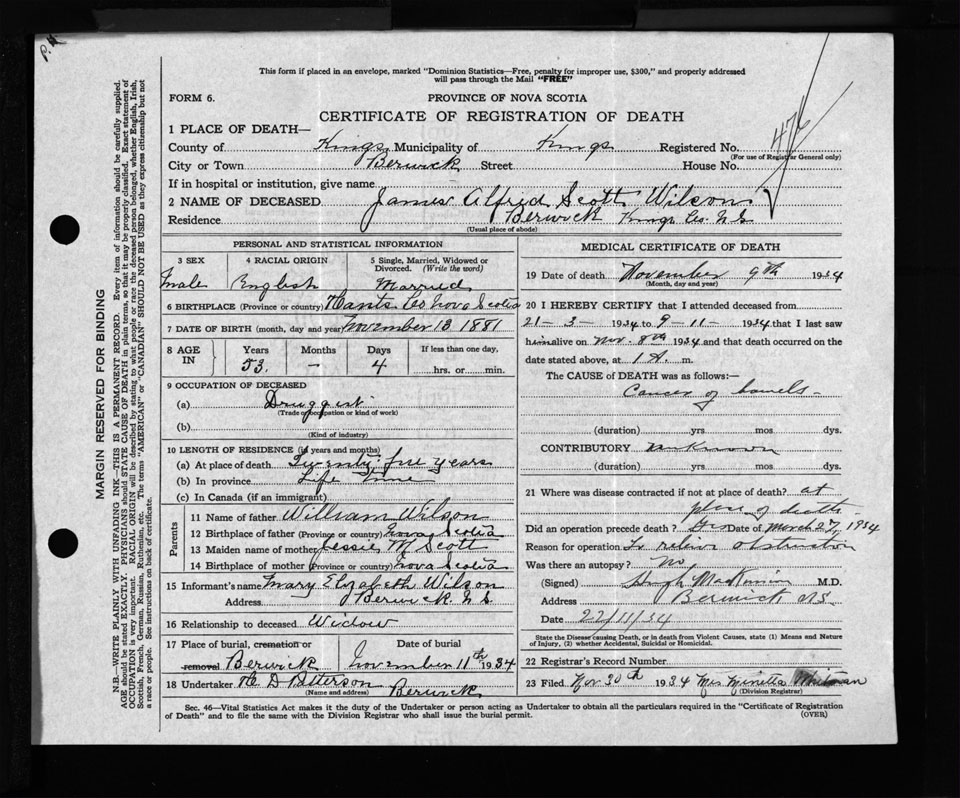 P.
This form if placed in an envelope, marked "Dominion Statistics—Free, penalty for improper use, $300," and properly addressed
will pass through the Mail "FREE"
FORM 6.
PROVINCE OF NOVA SCOTIA
CERTIFICATE OF REGISTRATION OF DEATH
1 PLACE OF DEATH—
County of Kings Municipality of Kings Registered No. 476
(For use of Registrar General only)
City or Town Berwick Street House No.
If in hospital or institution, give name
2 NAME OF DECEASED James Alfrid Scott Wilson
Residence Berwick Kings Co. N.S.
(Usual place of abode)
PERSONAL AND STATISTICAL INFORMATION
3 SEX 4 RACIAL ORIGIN 5 Single, Married, Widowed or
Divorced. (Write the word)
male English Married
6 BIRTHPLACE (Province or country) Hants Co Nova Scotia
7 DATE OF BIRTH (month, day and year) November 13 1881
8 AGE IN Years Months Days If less than one day,
53. — 4 hrs. or min.
9 OCCUPATION OF DECEASED
(a) Druggist
(Trade occupation or kind of work)
(b)
(Kind of industry)
10 LENGTH OF RESIDENCE (in years and months)
(a) At place of death Twenty five years
(b) In province Life time
(c) In Canada (if an immigrant)
Parents
11 Name of father William Wilson
12 Birthplace of father (Province or country) Nova Scotia
13 Maiden name of mother Jessie M Scott
14 Birthplace of mother (Province or country) Nova Scotia
15 Informant's name Mary Elizabeth Wilson
Address Berwick. N.S.
16 Relationship to deceased Widow
17 Place of burial, cremation or Date of burial
removal Berwick November 11th 1934
18 Undertaker D Patterson Berwick
(Name and address)
MEDICAL CERTIFICATE OF DEATH
19 Date of death November 9th 1934
(Month, day and year)
20 I HEREBY CERTIFY that I attended deceased from
21-3- 1934 to 9-11- 1934 that I last saw
him alive on Nov. 8th 1934 and that death occurred on the
date stated above, at 1 A. m.
The CAUSE of DEATH was as follows:—
Cancer of bowels-
(duration) yrs mos dys.
CONTRIBUTORY unknown
(duration) yrs mos dys.
21 Where was disease contracted if not at place of death? at
place of death-
Did an operation precede death? Yes Date of March 27, 1934
Reason for operation To relive obstruction
Was there an autopsy? no.
(Signed) Hugh M.D.
Address Berwick NS.
Date 22/11/34
State the Disease causing Death, or in death from Violent Causes, state (1) Means and Nature
of Injury, (2) whether Accidental, Suicidal or Homicidal.
22 Registrar's Record Number
23 Filed Nov 30th 1934 Mrs Minetta Whitman
(Division Registrar)
Sec. 46—Vital Statistics Act makes it the duty of the Undertaker or person acting as Undertaker to obtain all the particulars required in the "Certificate of Registration
of Death" and to file the same with the Division Registrar who shall issue the burial permit. (OVER)
MARGIN RESERVED FOR BINDING
N.B.—WRITE PLAINLY WITH UNFADING INK—THIS IS A PERMANENT RECORD. Every item of information should be carefully supplied.
AGE should be stated EXACTLY. PHYSICIANS should STATE CAUSE OF DEATH in plain terms, so that it may be properly classified. Exact statement of
OCCUPATION is very important. RACIAL ORIGIN will be described by stating to what people or race the deceased person belonged, whether English, Irish,
Scottish, French, German, Russian, Ruthenian, etc. The terms "AMERICAN" or "CANADIAN" SHOULD NOT BE USED as they express citizenship but not
a race or people. See instructions on back of certificate.